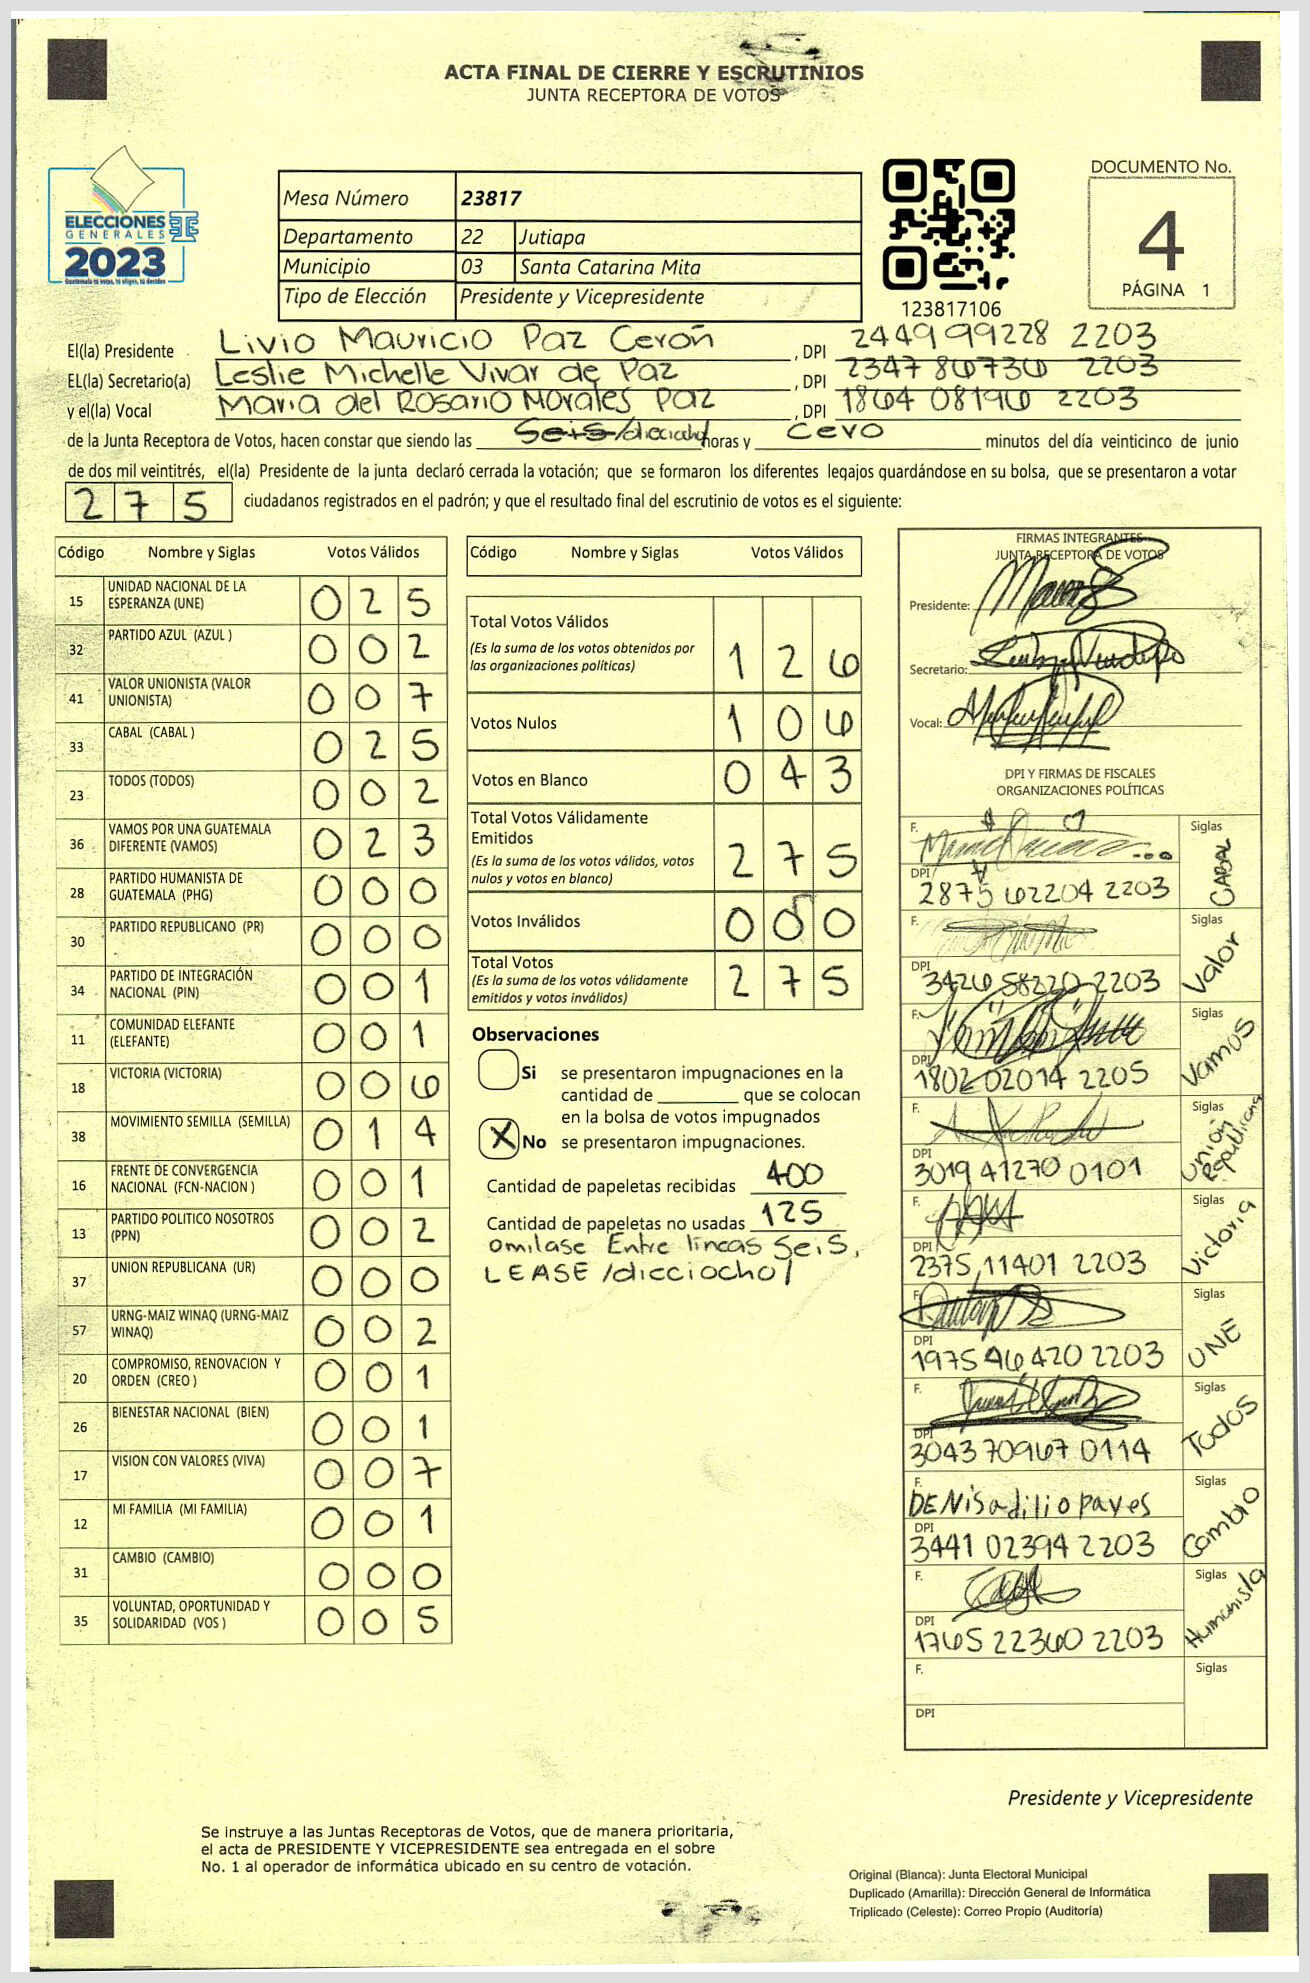 ACTA FINAL DE CIERRE Y ESCRUTINIOS
JUNTA RECEPTORA DE VOTOS
ELECCIONES
GENERALES
2023
Guatemala tú votas, tú eliges, tú decides
Mesa Número 23817
Departamento 22 Jutiapa
Municipio 03 Santa Catarina Mita
Tipo de Elección Presidente y Vicepresidente
123817106
DOCUMENTO No.
4
PÁGINA 1
El(la) Presidente Livio Mauricio Paz Cerón, DPI 2449 99228 2203
EL(la) Secretario(a) Leslie Michelle Vivar de Paz, DPI 2347 86736 2203
y el(la) Vocal Maria del Rosario Morales Paz, DPI 1864 08196 2203
de la Junta Receptora de Votos, hacen constar que siendo las Seis/dieciocho/ horas y cero minutos del día veinticinco de junio
de dos mil veintitrés, el(la) Presidente de la junta declaró cerrada la votación; que se formaron los diferentes legajos guardándose en su bolsa, que se presentaron a votar
275 ciudadanos registrados en el padrón; y que el resultado final del escrutinio de votos es el siguiente:
Código Nombre y Siglas Votos Válidos
15 UNIDAD NACIONAL DE LA ESPERANZA (UNE) 025
32 PARTIDO AZUL (AZUL ) 002
41 VALOR UNIONISTA (VALOR UNIONISTA) 007
33 CABAL (CABAL ) 025
23 TODOS (TODOS) 002
36 VAMOS POR UNA GUATEMALA DIFERENTE (VAMOS) 023
28 PARTIDO HUMANISTA DE GUATEMALA (PHG) 000
30 PARTIDO REPUBLICANO (PR) 000
34 PARTIDO DE INTEGRACIÓN NACIONAL (PIN) 001
11 COMUNIDAD ELEFANTE (ELEFANTE) 001
18 VICTORIA (VICTORIA) 006
38 MOVIMIENTO SEMILLA (SEMILLA) 014
16 FRENTE DE CONVERGENCIA NACIONAL (FCN-NACION ) 001
13 PARTIDO POLITICO NOSOTROS (PPN) 002
37 UNION REPUBLICANA (UR) 000
57 URNG-MAIZ WINAQ (URNG-MAIZ WINAQ) 002
20 COMPROMISO, RENOVACION Y ORDEN (CREO ) 001
26 BIENESTAR NACIONAL (BIEN) 001
17 VISION CON VALORES (VIVA) 007
12 MI FAMILIA (MI FAMILIA) 001
31 CAMBIO (CAMBIO) 000
35 VOLUNTAD, OPORTUNIDAD Y SOLIDARIDAD (VOS ) 005
Código Nombre y Siglas Votos Válidos
Total Votos Válidos 126
(Es la suma de los votos obtenidos por
las organizaciones políticas)
Votos Nulos 106
Votos en Blanco 043
Total Votos Válidamente
Emitidos 275
(Es la suma de los votos válidos, votos
nulos y votos en blanco)
Votos Inválidos 000
Total Votos 275
(Es la suma de los votos válidamente
emitidos y votos inválidos)
Observaciones
Si se presentaron impugnaciones en la
cantidad de ________ que se colocan
en la bolsa de votos impugnados
X No se presentaron impugnaciones.
Cantidad de papeletas recibidas 400
Cantidad de papeletas no usadas 125
omitase Entre líneas Seis,
LEASE /dieciocho/
FIRMAS INTEGRANTES
JUNTA RECEPTORA DE VOTOS
Presidente:
Secretario:
Vocal:
DPI Y FIRMAS DE FISCALES
ORGANIZACIONES POLÍTICAS
F. Siglas CABAL
DPI 2875 62204 2203
F. Siglas Valor
DPI 3426 58220 2203
F. Siglas Vamos
DPI 1802 02014 2205
F. Siglas Unión Republicana
DPI 3019 41270 0101
F. Siglas Victoria
DPI 2375 11401 2203
F. Siglas UNE
DPI 1975 46420 2203
F. Siglas Todos
DPI 3043 70967 0114
F. DENis adilio paves Siglas Cambio
DPI 3441 02394 2203
F. Siglas Humanista
DPI 1765 22360 2203
F. Siglas
DPI
Presidente y Vicepresidente
Se instruye a las Juntas Receptoras de Votos, que de manera prioritaria,
el acta de PRESIDENTE Y VICEPRESIDENTE sea entregada en el sobre
No. 1 al operador de informática ubicado en su centro de votación.
Original (Blanca): Junta Electoral Municipal
Duplicado (Amarilla): Dirección General de Informática
Triplicado (Celeste): Correo Propio (Auditoría)